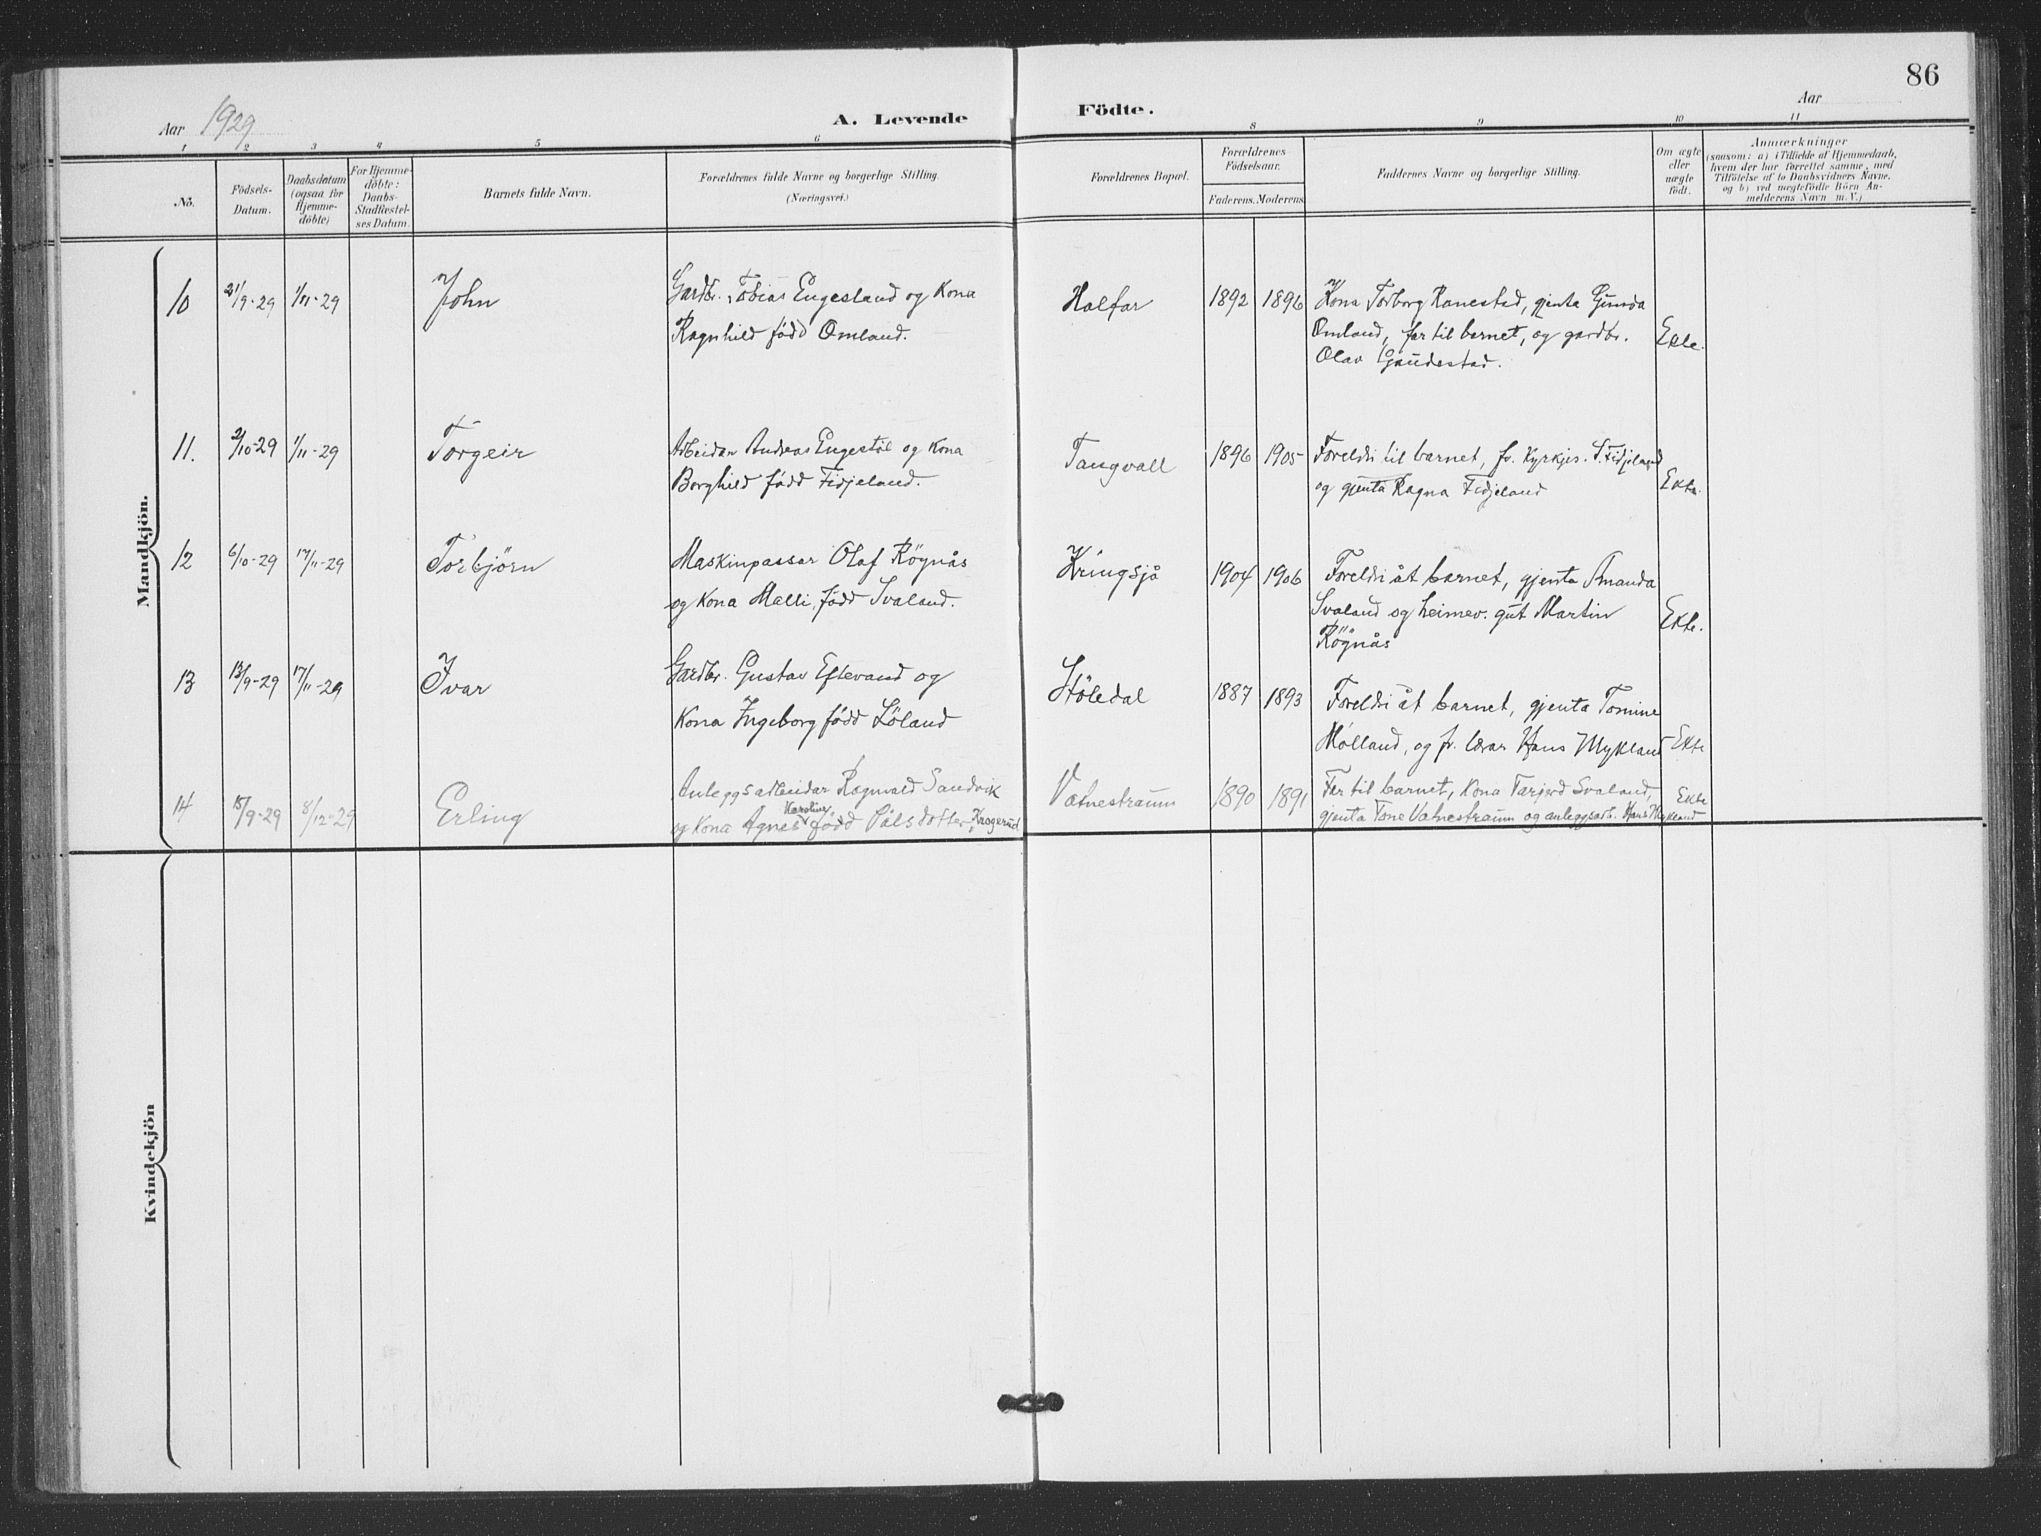 86
Aar 1929
A. Levende Födte.
Aar
1 2 3 4 5 6 8 9 10 11
No.
Födsels-Datum.
Daabsdatum (ogsaa for Hjemme-döbte)
For Hjemme-döbte: Daabs-Stadfæstel-ses Datum.
Barnets fulde Navn.
Forældrenes fulde Navne og borgerlige Stilling.
(Næringsvei.)
Forældrenes Bopæl.
Forældrenes Födselsaar.
Faderens. Moderens.
Faddernes Navne og borgerlige Stilling.
Om ægte eller uægte födt.
Anmærkninger
(saasom: a) i Tilfælde af Hjemmedaab,
hvem der har forrettet samme, med
Tilföielse af to Daabsvidners Navne,
og b) ved uægtefödte Börn An-
melderens Navn m. V.)
Mandkjön.
10 21/9-29 1/11-29 John Gardbr. Tobias Engesland og Kona Halfar 1892 1896 Kona Torborg Ranestad, gjenta Gunda
Ragnhild född Omland. Omland, far til barnet, og gardbr. Ekte.
Olav Gaudestad.
11. 2/10-29 1/11-29 Torgeir Arbeidar Andreas Engestöl og Kona Tangvall 1896 1905 Foreldri til barnet, fv. Kyrkjes. S. Fidjeland
Borghild född Fidjeland. og gjenta Ragna Fidjeland Ekte.
12 6/10-29 17/11-29 Torbjörn Maskinpassar Olaf Rögnås Kringsjå 1904 1906 Foreldri åt barnet, gjenta Amanda
og Kona Malli, född Svaland. Svaland og heimev. gut Martin Ekte.
Rögnås
13 13/9-29 17/11-29 Ivar Gardbr. Gustav Eftevand og Stöledal 1887 1893 Foreldri åt barnet, gjenta Tomine
Kona Ingeborg född Löland Mölland, og fv. lærar Hans Mykland Ekte
14 15/9-29 8/12-29 Erling Anleggsarbeidar Ragnvald Sandvik Vatnestraum 1890 1891 Far til barnet, Kona Tarjerd Svaland, Ekte
og Kona Agnes Karoline född Pålsdotter Krogerud gjenta Tone Vatnestraum og anleggsarb. Hans Mykland
Kvindekjön